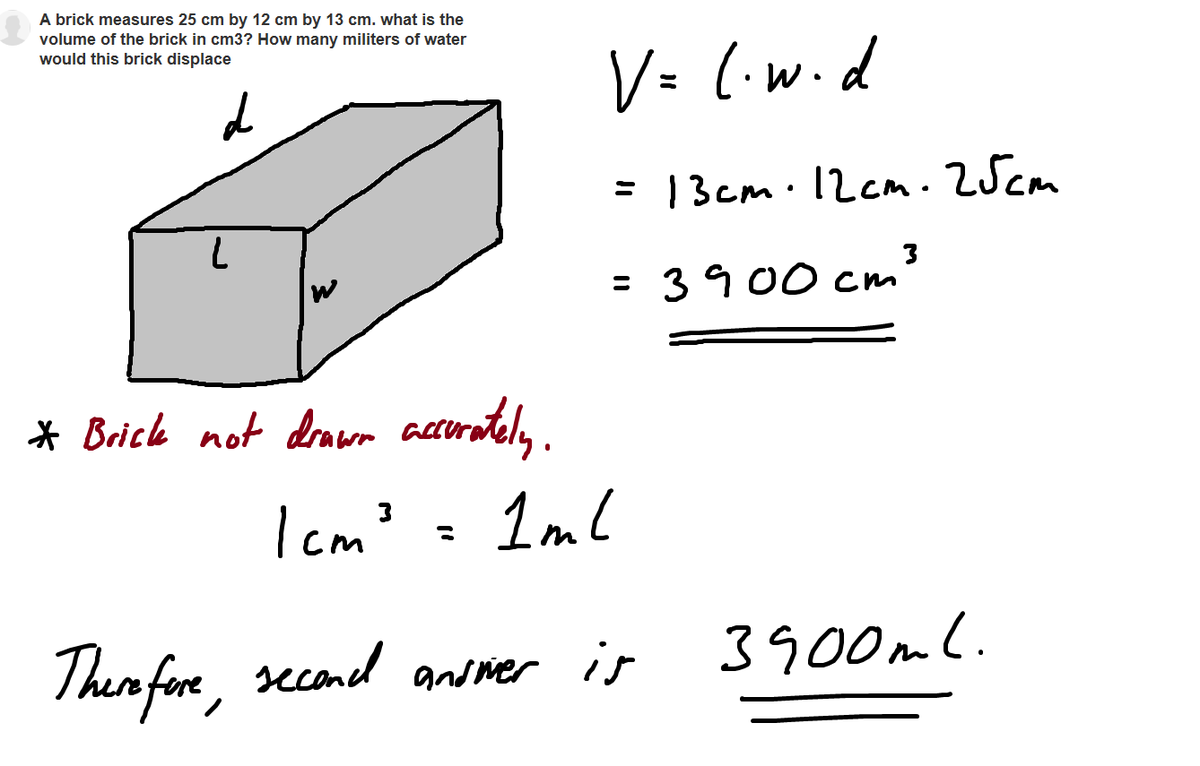 A brick measures 25 cm by 12 cm by 13 cm. what is the
volume of the brick in cm3? How many militers of water
would this brick displace
V = l · w · d
= 13cm · 12cm · 25cm
= 3900 cm³
d
l
w
* Brick not drawn accurately.
1cm³ = 1ml
Therefore, second answer is 3900ml.